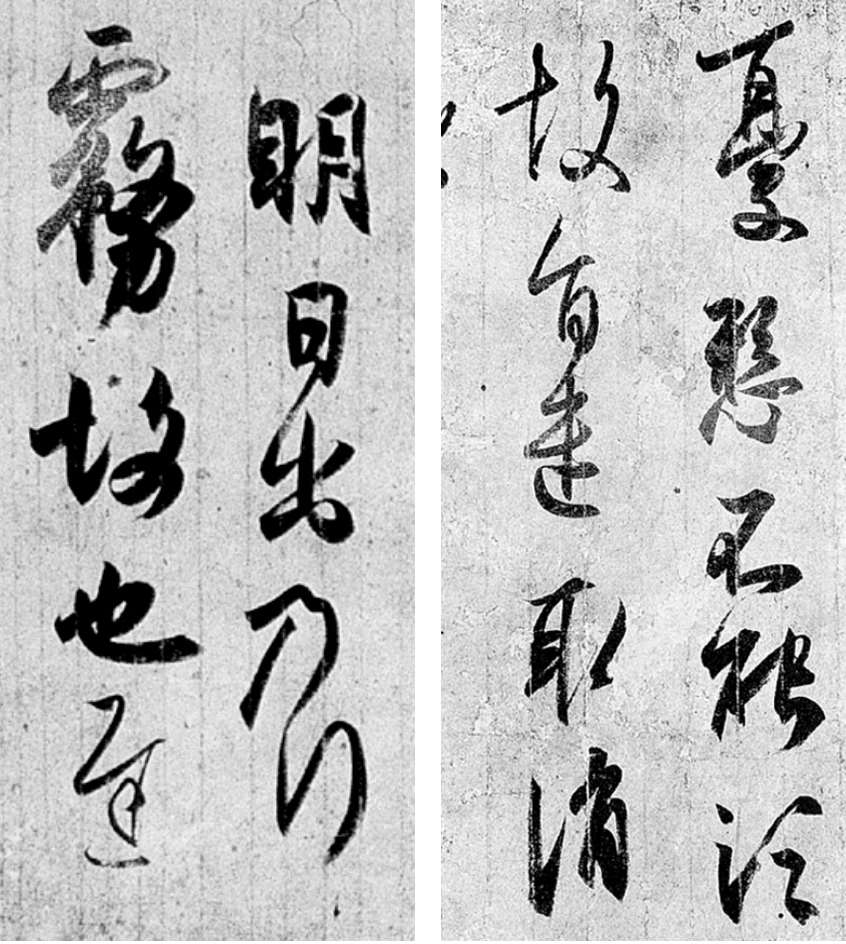 明日出乃行
霧故也
憂懸不能須
故旨遣取消